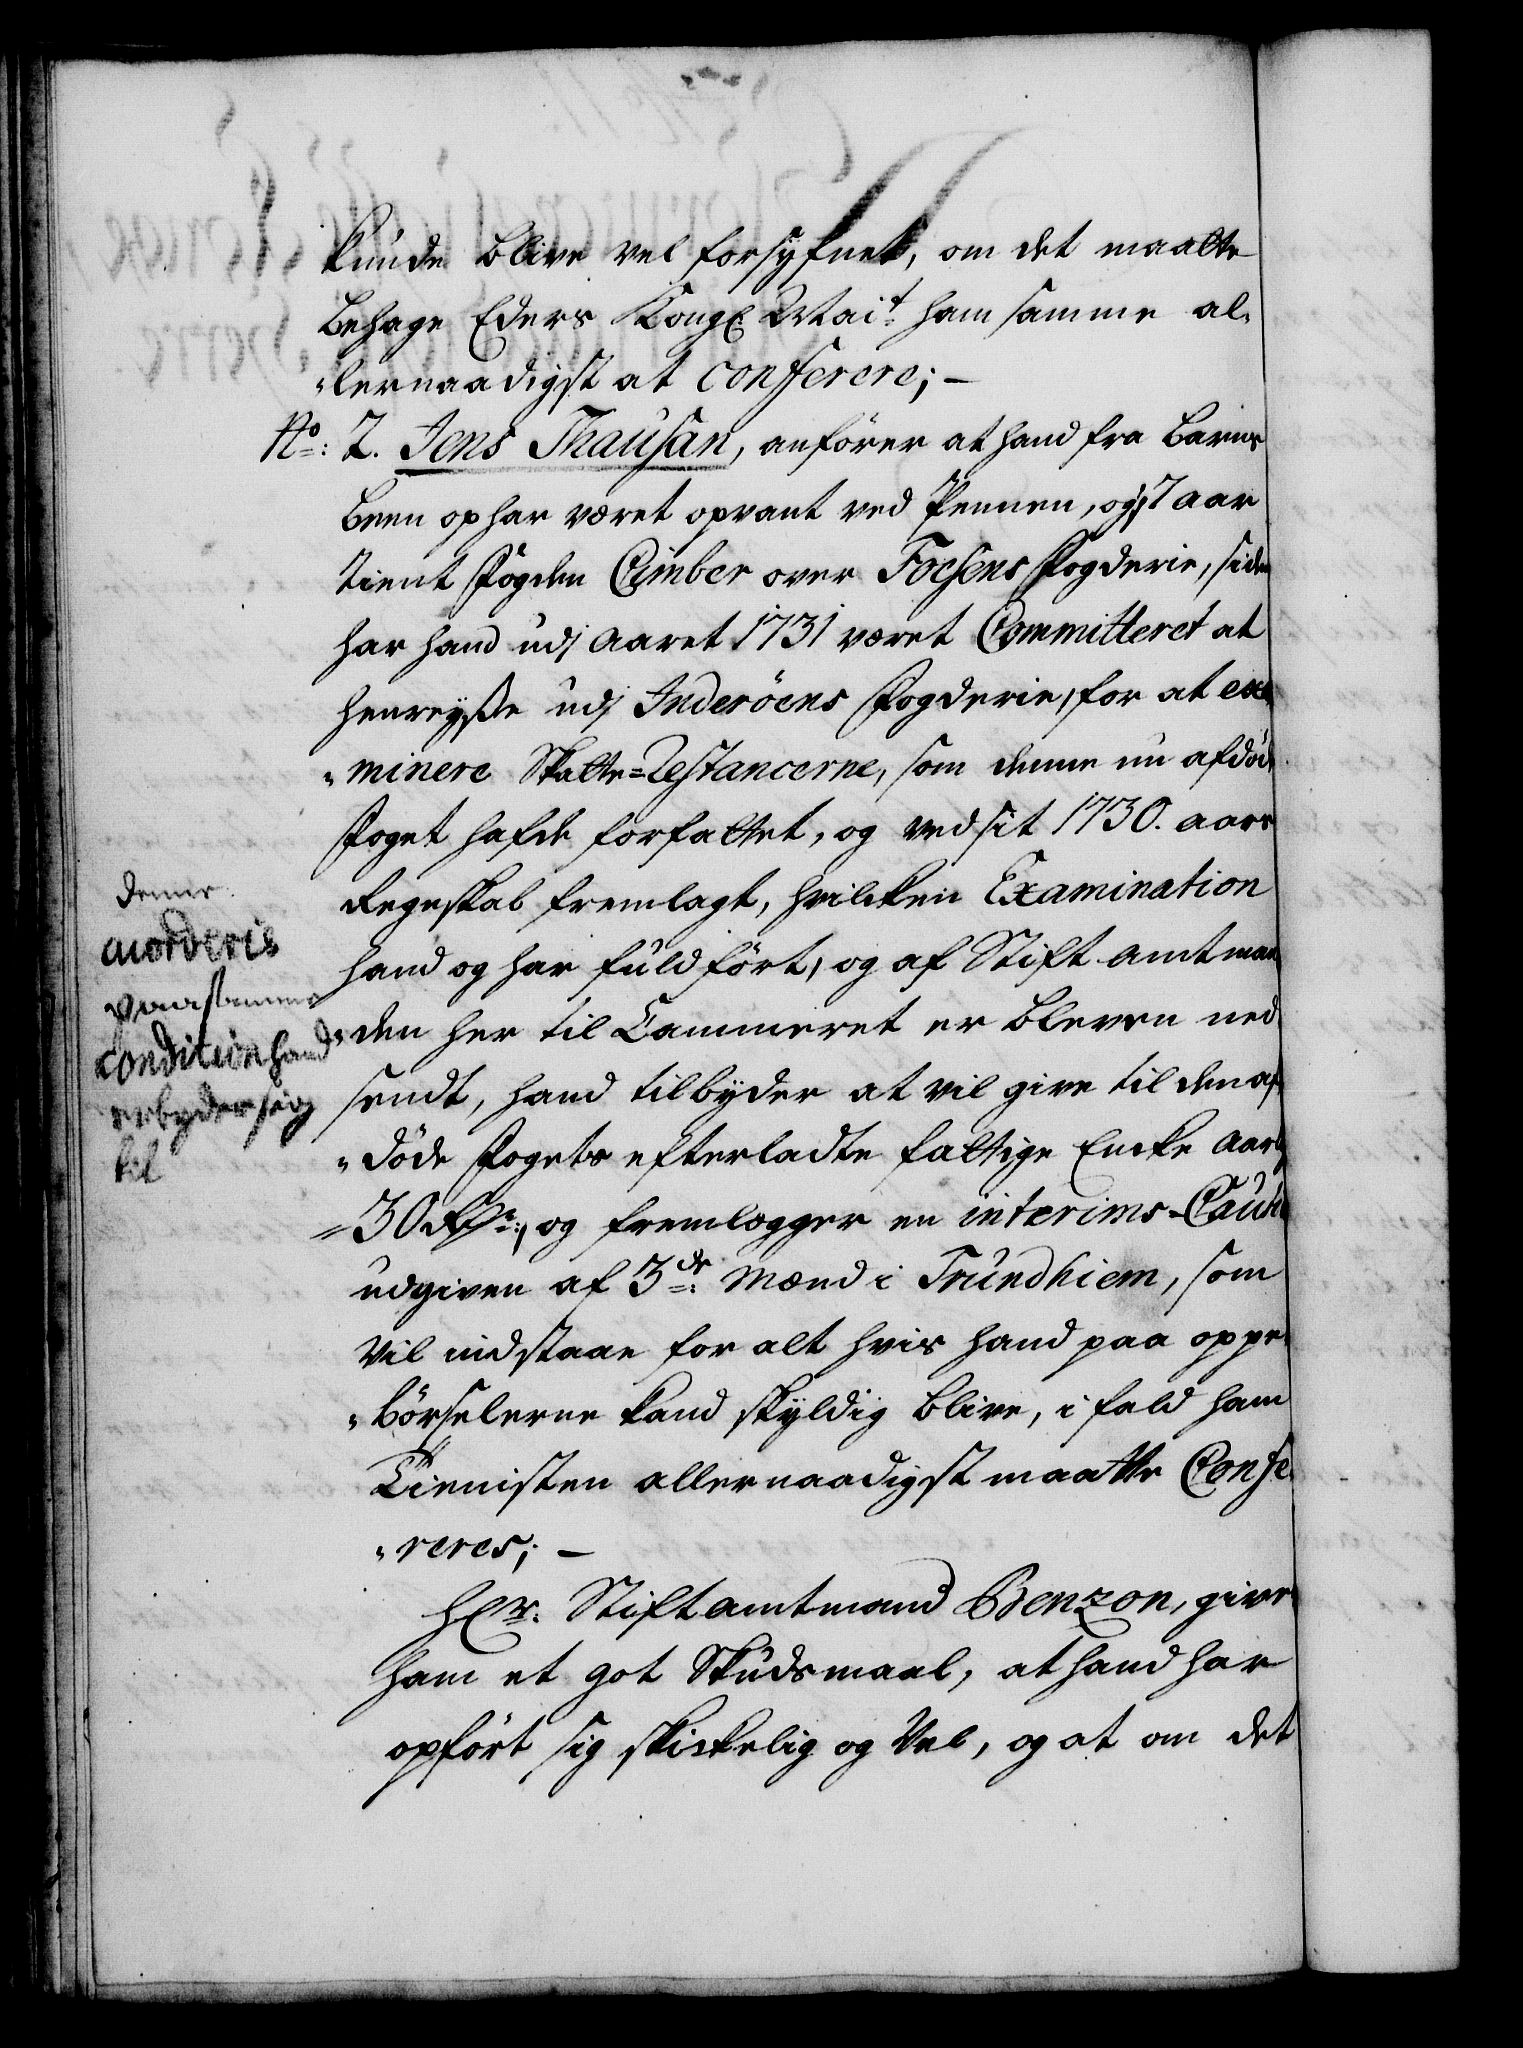 kunde blive vel forsyfnet, om det maatte
behage Eders Kongl: Mai.t ham samme al-
„lernaadigst at conferere; —
No: 2. Jens Thausan, anförer at hand fra Barns
been op har været opvant ved Pennen, og 7 aar
tient Fogden Cimber over Fosens Fogderie, siden
har hand udj Aaret 1731 været Committeret at
henreyse udj Inderöens Fogderie, for at exa-
„minere Skatte-Restancerne, som denne nu afdöde
Foget hafde forfattet, og ved sit 1730. aars
Regnskab fremlagt, hvilken Examination
hand og har fuldfört, og af Stift amtman-
„den her til Cammeret er bleven ned
sendt, hand tilbyder at vil give til den af-
„döde Fogets efterladte fattige Encke aarl:
30 Rdr:, og fremlegger en interims-Caution
udgiven af 3de: Mænd i Trundhiem, som
vil indstaae for alt hvis hand paa oppe-
„börselerne kand skyldig blive, i fald ham
Tienisten allernaadigst maatte Confe-
„reres; —
Hr. Stiftamtmand Benzon, giver
ham et got Skudsmaal, at hand har
opfört sig skickelig og Vel, og at om det
denne
accorderis
paa samme
condition hand
erbyder sig
til